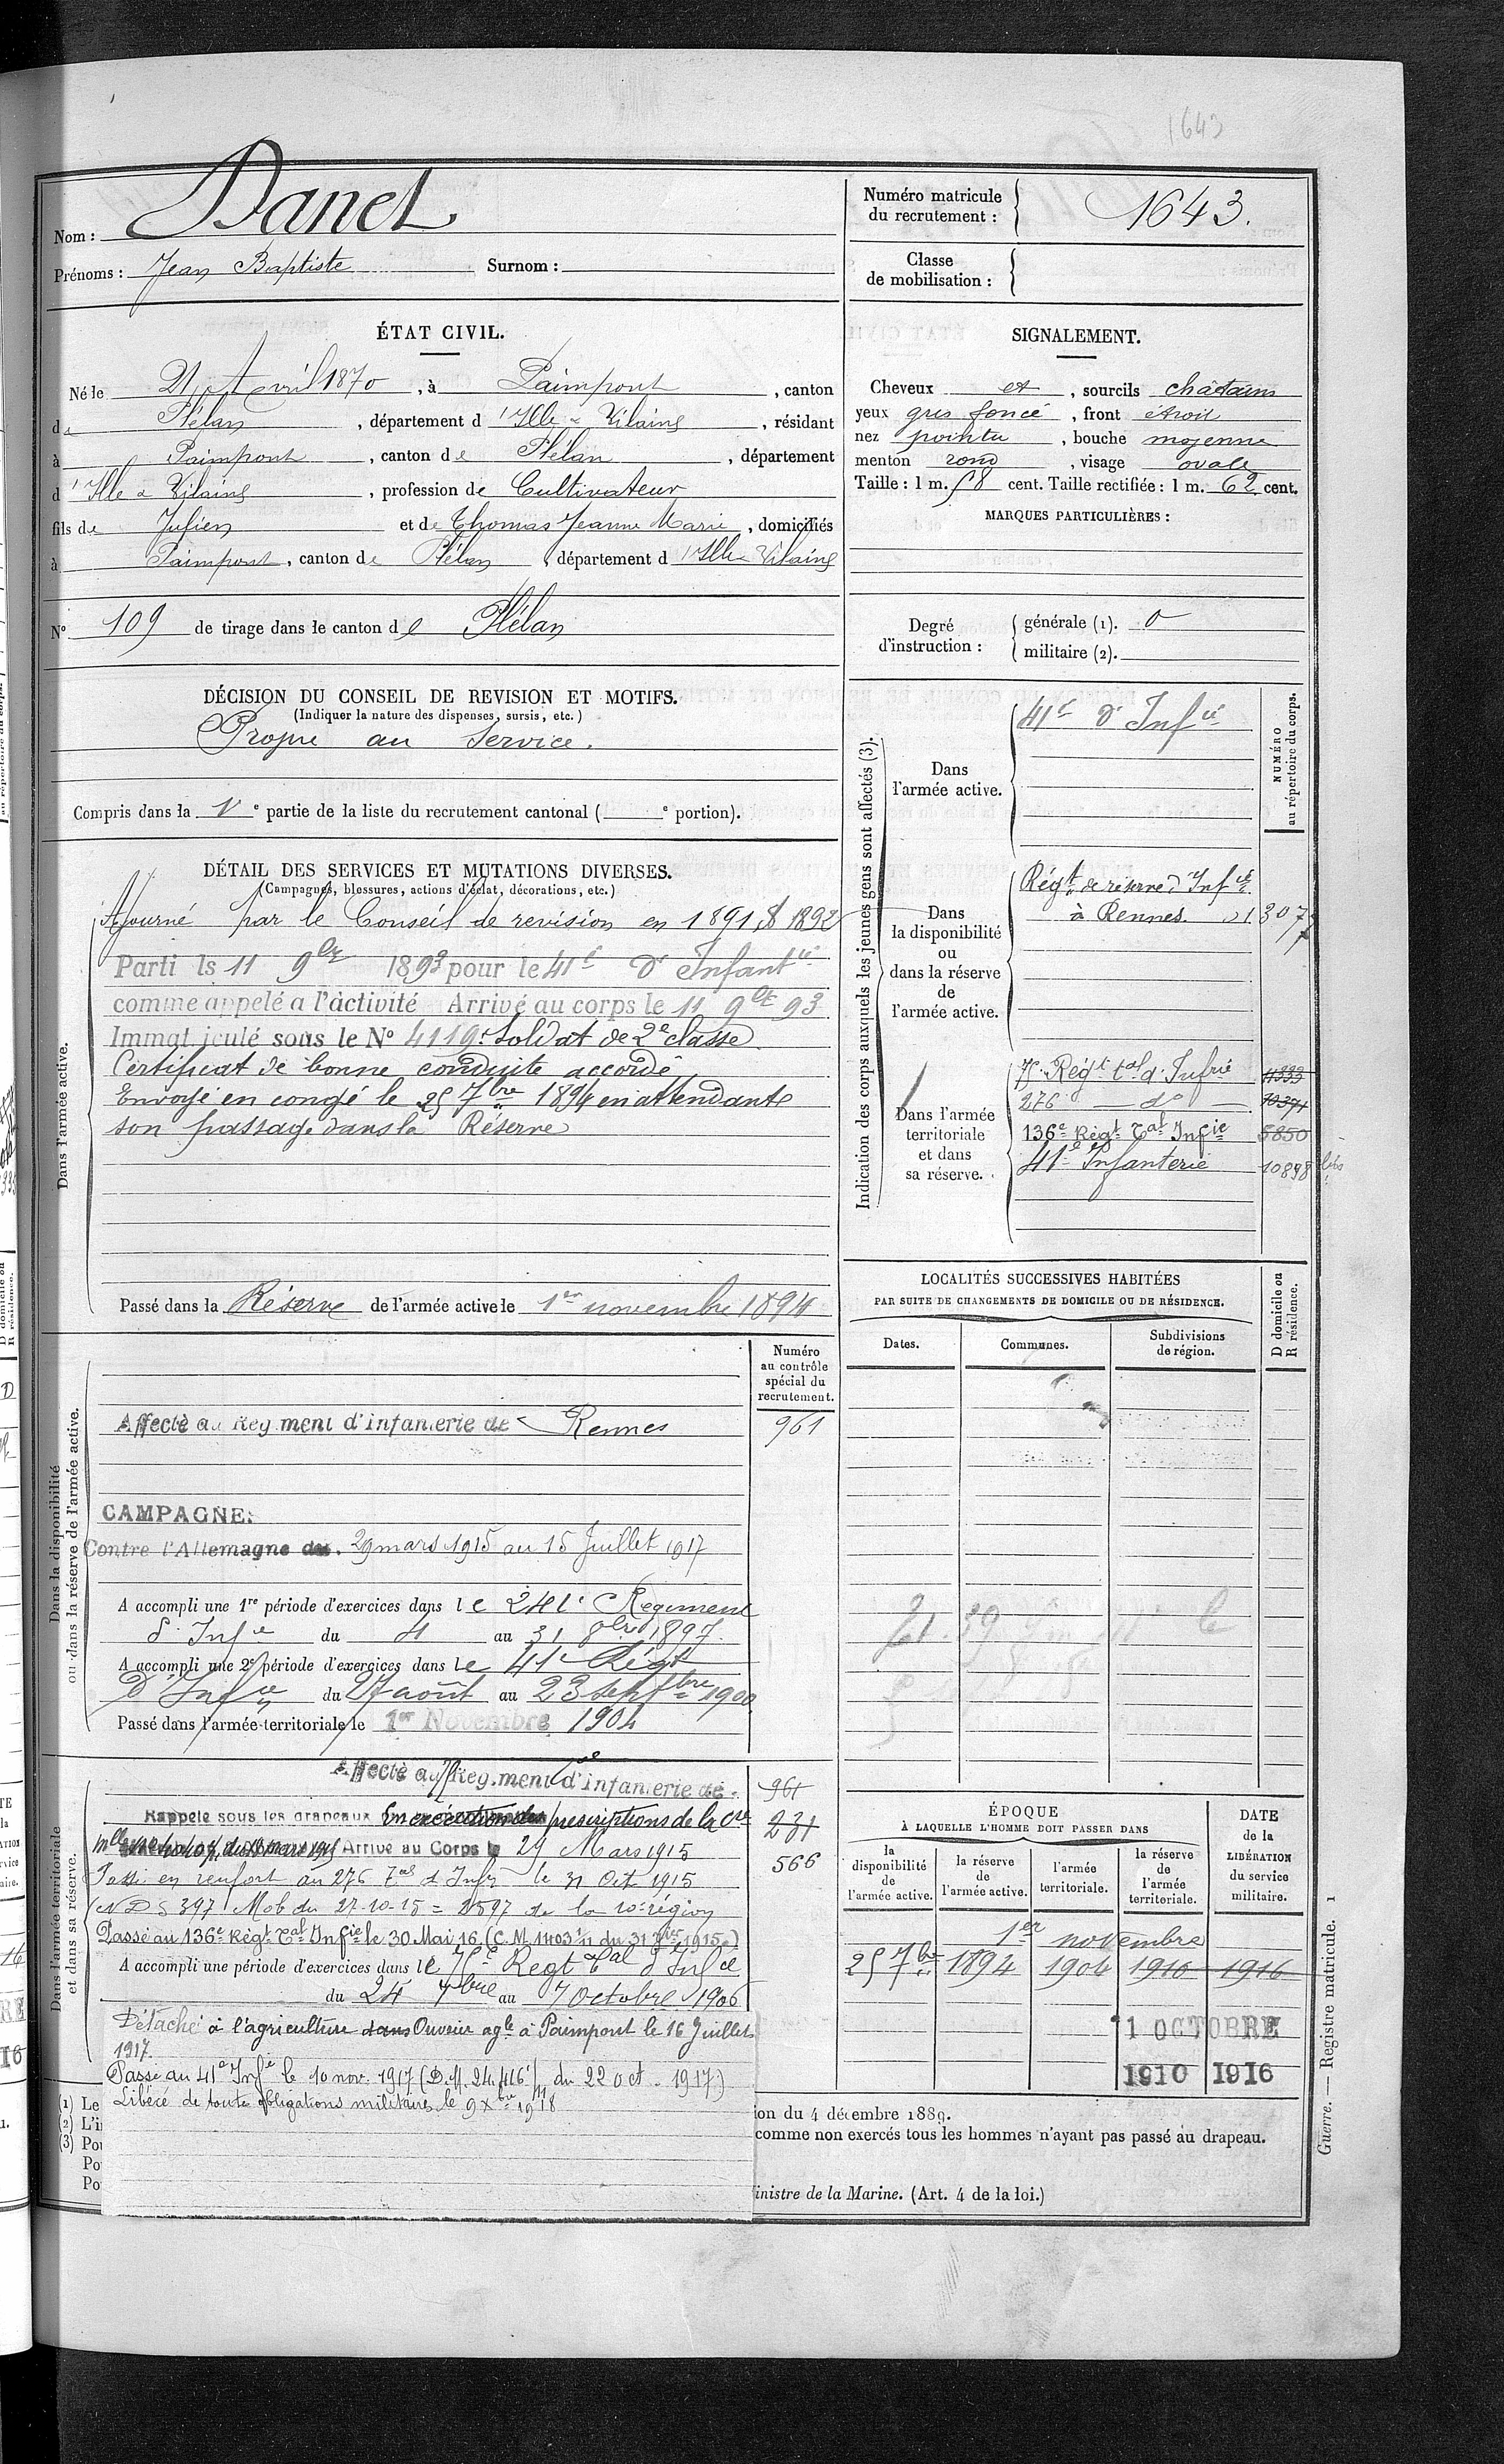 1643
Nom : Danet
Prénoms : Jean Baptiste Surnom :
Numéro matricule du recrutement : 1643.
Classe de mobilisation :
ÉTAT CIVIL.
Né le 21 Avril 1870, à Paimpont, canton
de Plélan, département d'Ille & Vilaine, résidant
à Paimpont, canton de Plélan, département
d'Ille & Vilaine, profession de Cultivateur
fils de Julien et de Thomas Jeanne Marie, domiciliés
à Paimpont, canton de Plélan, département d'Ille Vilaine
N° 109 de tirage dans le canton de Plélan
SIGNALEMENT.
Cheveux et, sourcils châtains
yeux gris foncé, front étroit
nez pointu, bouche moyenne
menton rond, visage ovale
Taille : 1 m. 58 cent. Taille rectifiée : 1 m. 62 cent.
MARQUES PARTICULIÈRES :
Degré d'instruction :
générale (1). 0
militaire (2).
DÉCISION DU CONSEIL DE REVISION ET MOTIFS.
(Indiquer la nature des dispenses, sursis, etc.)
Propre au service.
Compris dans la 1e partie de la liste du recrutement cantonal ( e portion).
DÉTAIL DES SERVICES ET MUTATIONS DIVERSES.
(Campagnes, blessures, actions d'éclat, décorations, etc.)
Dans l'armée active.
Ajourné par le Conseil de revision en 1891 & 1892
Parti le 11 9bre 1893 pour le 41e d'Infantie
comme appelé a l'activité Arrivé au corps le 11 9bre 93
Immat iculé sous le N° 4119. Soldat de 2e classe
Certificat de bonne conduite accordé
Envoyé en congé le 25 7bre 1894 en attendant
son passage dans la Réserve
Passé dans la Réserve de l'armée active le 1er novembre 1894
Indication des corps auxquels les jeunes gens sont affectés (3).
NUMÉRO au répertoire du corps.
Dans l'armée active.
41e d'Infie
Dans la disponibilité ou dans la réserve de l'armée active.
Régt de réserve d'Infie
à Rennes
Dans l'armée territoriale et dans sa réserve.
Régt tal d'Infie 11333
276 — do — 10371
136e Régt Tal Infie 5850
41e Infanterie 10898 bis
LOCALITÉS SUCCESSIVES HABITÉES
PAR SUITE DE CHANGEMENTS DE DOMICILE OU DE RÉSIDENCE.
Dates.
Communes.
Subdivisions de région.
D domicile ou R résidence.
Dans la disponibilité ou dans la réserve de l'armée active.
Numéro au contrôle spécial du recrutement.
Affecté au Régiment d'infanterie de Rennes 961
CAMPAGNE:
Contre l'Allemagne du 29 mars 1915 au 15 Juillet 1917
A accompli une 1re période d'exercices dans le 241e Régiment
d'Infie du 4 au 31 8bre 1897
A accompli une 2e période d'exercices dans le 41e Régt
d'Infie du 27 août au 23 septbre 1900
Passé dans l'armée territoriale le 1er Novembre 1904
Dans l'armée territoriale et dans sa réserve.
Affecté au Régiment d'infanterie de 961
Rappelé sous les drapeaux En exécution des prescriptions de la Cre 231
Mlle du mars 1915 Arrivé au Corps le 29 Mars 1915 566
Passé en renfort au 276 Tal d'Infie le 31 Oct 1915
(N D S 397 Mob du 27-10-15 = 2597 de la 10e région
Passé au 136e Régt Tal Infie le 30 Mai 16. (C.M. 1403 du 31 1915)
A accompli une période d'exercices dans le Regt Tal d'Infie
du 24 7bre au 7 Octobre 1906
Détaché à l'agriculture dans Ouvrier agle à Paimpont le 16 Juillet
1917.
Passé au 41e Infie le 10 nov. 1917 (D.M. 24.416 du 22 oct. 1917)
Libéré de toute obligations militaires le 9 Xbre 1918
ÉPOQUE
À LAQUELLE L'HOMME DOIT PASSER DANS
la disponibilité de l'armée active.
la réserve de l'armée active.
l'armée territoriale.
la réserve de l'armée territoriale.
DATE de la LIBÉRATION du service militaire.
1er novembre
25 7bre 1894 1904 1910 1916
1 OCTOBRE
1910 1916
(1) Le
(2) L'i
(3) Pou
Po
Po
ion du 4 décembre 1889.
comme non exercés tous les hommes n'ayant pas passé au drapeau.
inistre de la Marine. (Art. 4 de la loi.)
Guerre. — Registre matricule. 1